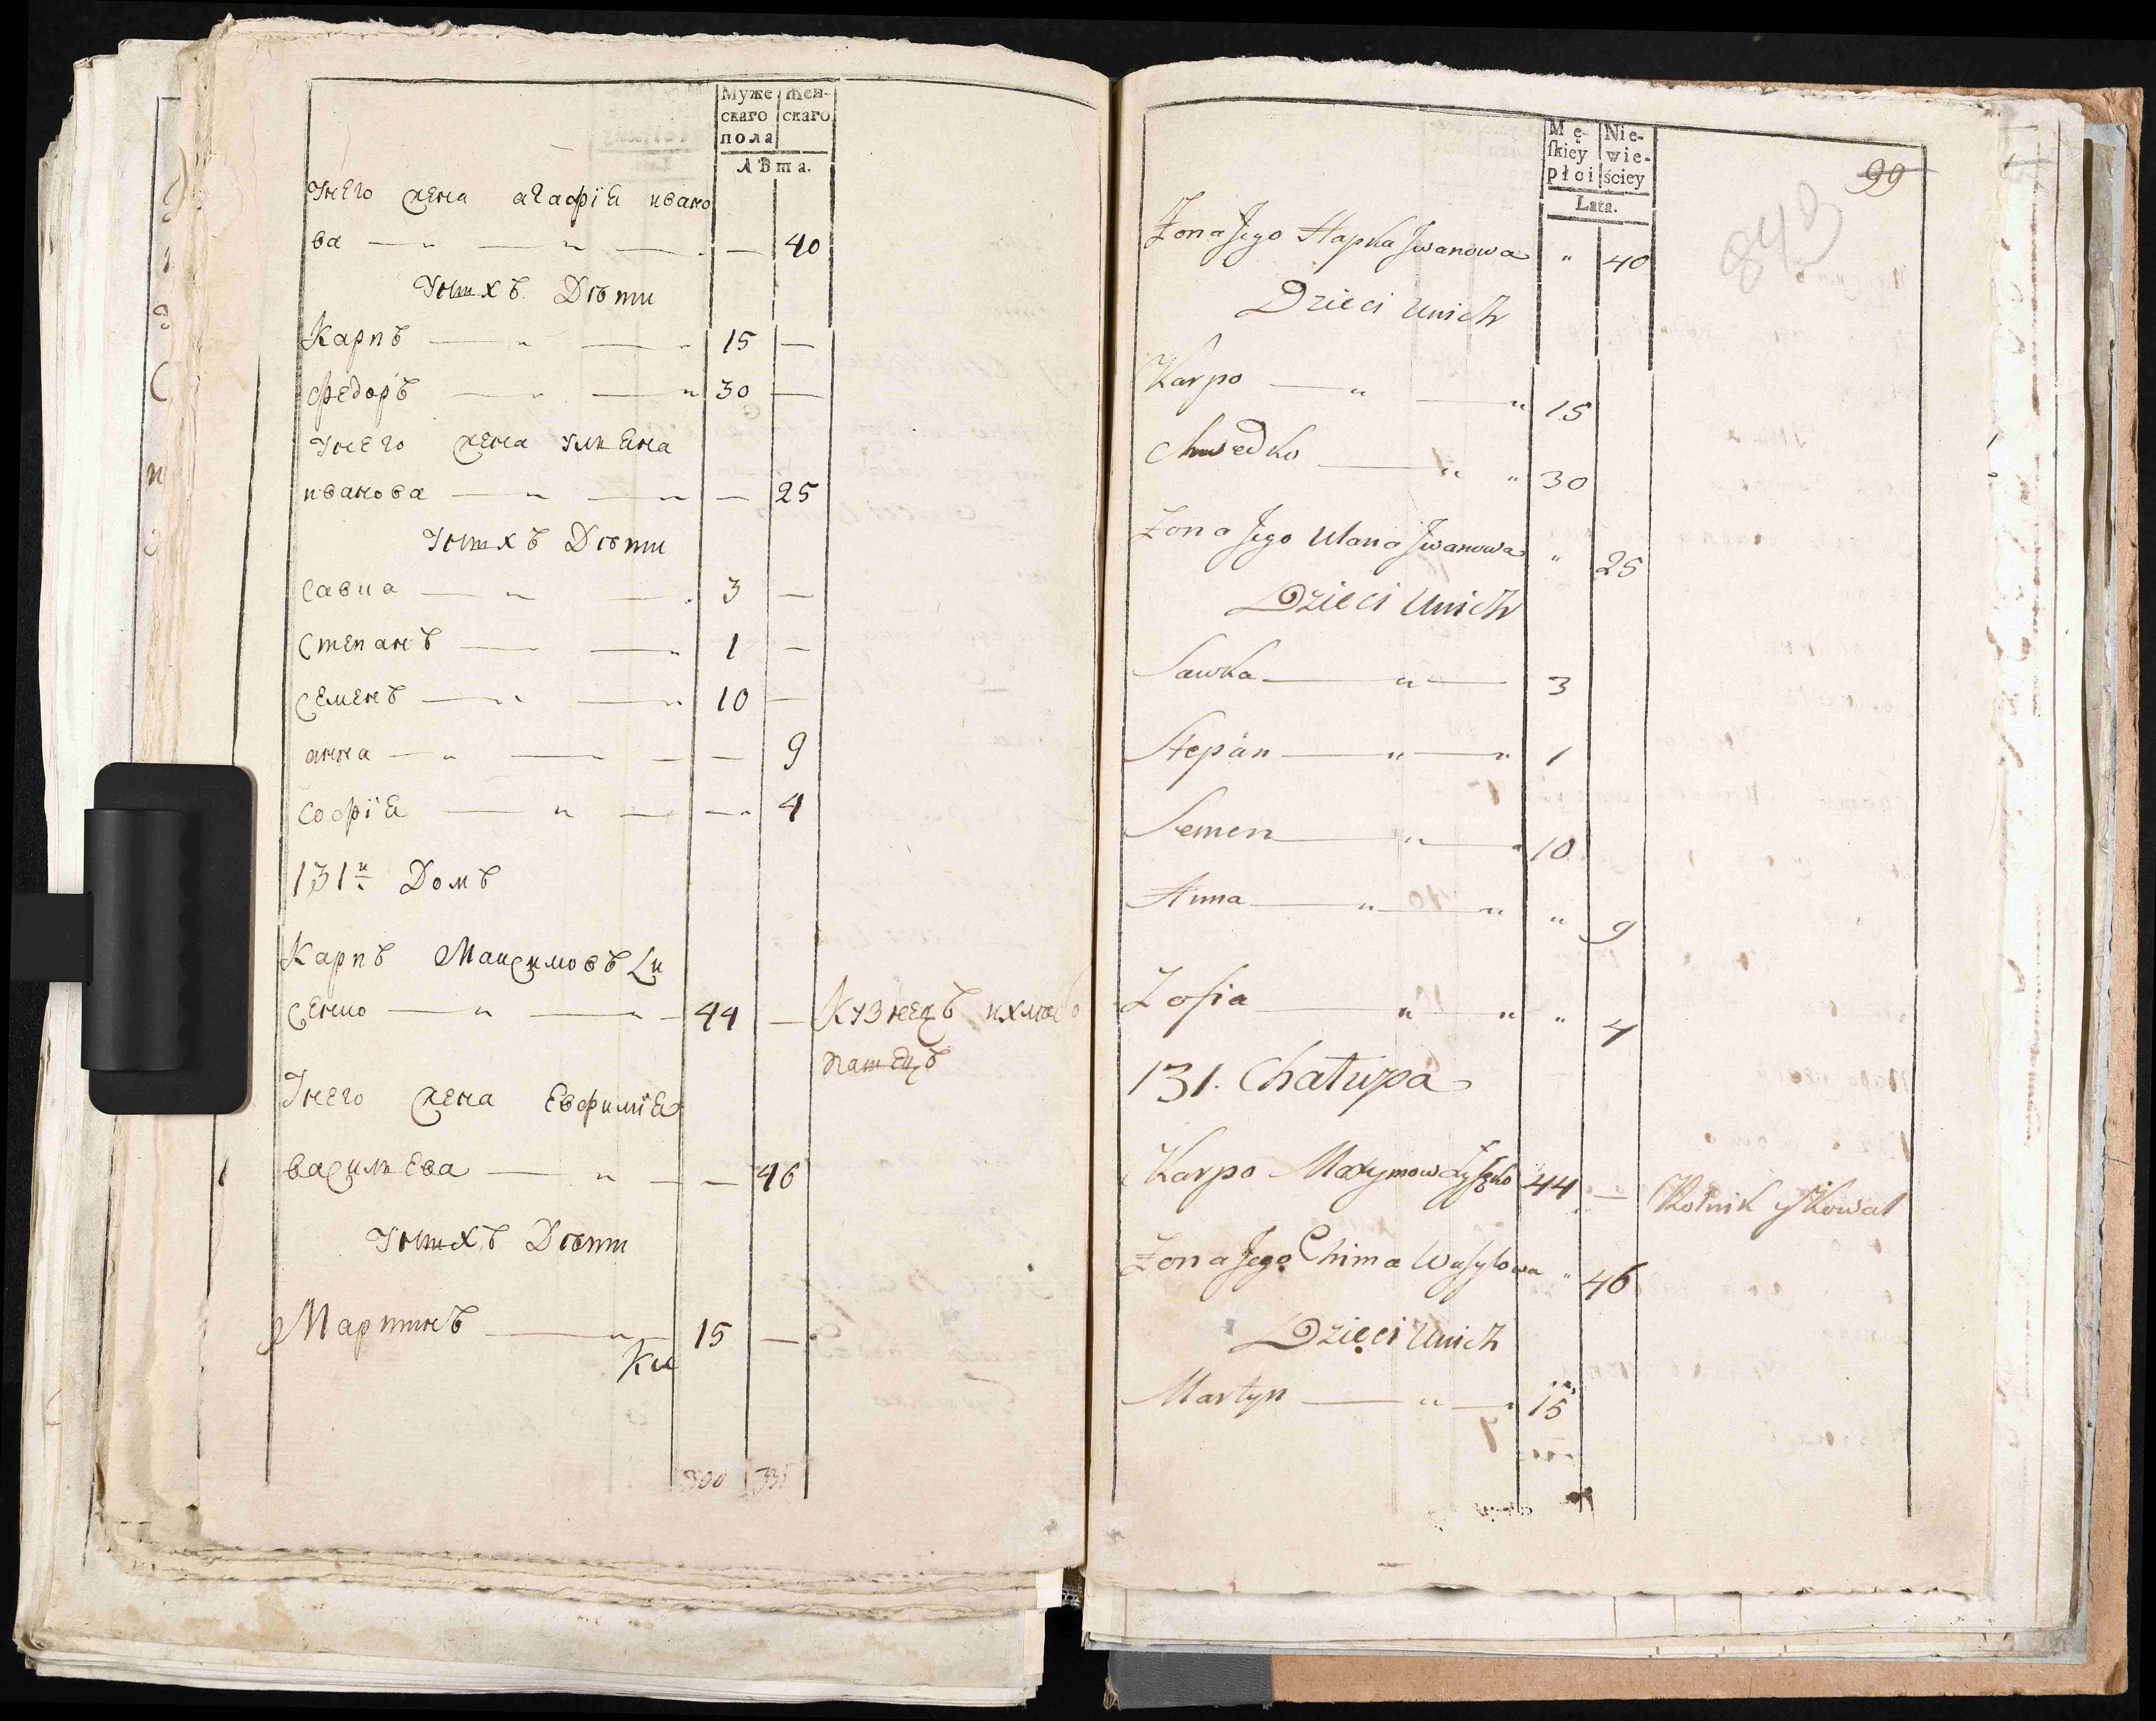 Муже
скаго
пола
Жен-
скаго
Лѣта.
Унего жена агафїя ивано
ва — „ — „ — — 40
Унихъ Дѣти
Карпъ — „ — „ 15 —
Федоръ — „ — „ 30 —
Унего жена Ульяна
иванова — „ — „ — 25
Унихъ Дѣти
Савка — „ — 3 —
Степанъ — — „ 1 —
Семенъ — „ — „ 10 —
анна — „ — — — 9
Софїя — „ — — „ 4
131й Домъ
Карпъ Максимовъ Ли
сенко — „ — „ 44 — Кузнецъ ихлебо
пашецъ
Унего жена Евфимїя
васильева — „ — — 46
Унихъ Дѣти
Мартинъ — „ — 15 —
300 331
Mę-
ſkiey
płci
Nie-
wie-
ściey
Lata.
99
843
Żona Jego Hapka Jwanowa „ 40
Dzieci Unich
Karpo — „ — „ 15
Chwedko — „ „ 30
Żona Jego Ulana Jwanowa „ 25
Dzieci Unich
Sawka — „ — 3
Stepan — „ — „ 1
Semen — „ — 10
Anna — „ — „ „ 9
Zofia — „ — „ „ 4
131. Chałupa
Karpo Maxymow Łyſęko 44 — Rolnik y Kowal
Żona Jego Chima Waſylowa „ 46
Dzieci Unich
Martyn — „ — 15